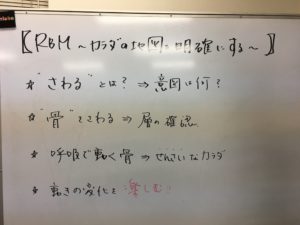 〖RBM 〜カラダの地図を明確にする〜〗
★"さわる"とは? ⇒ 意図は何?
★"骨"をさわる ⇒ 層の確認
★呼吸で動く骨 ⇒ せんさいなカラダ
★動きの変化を楽しむ!